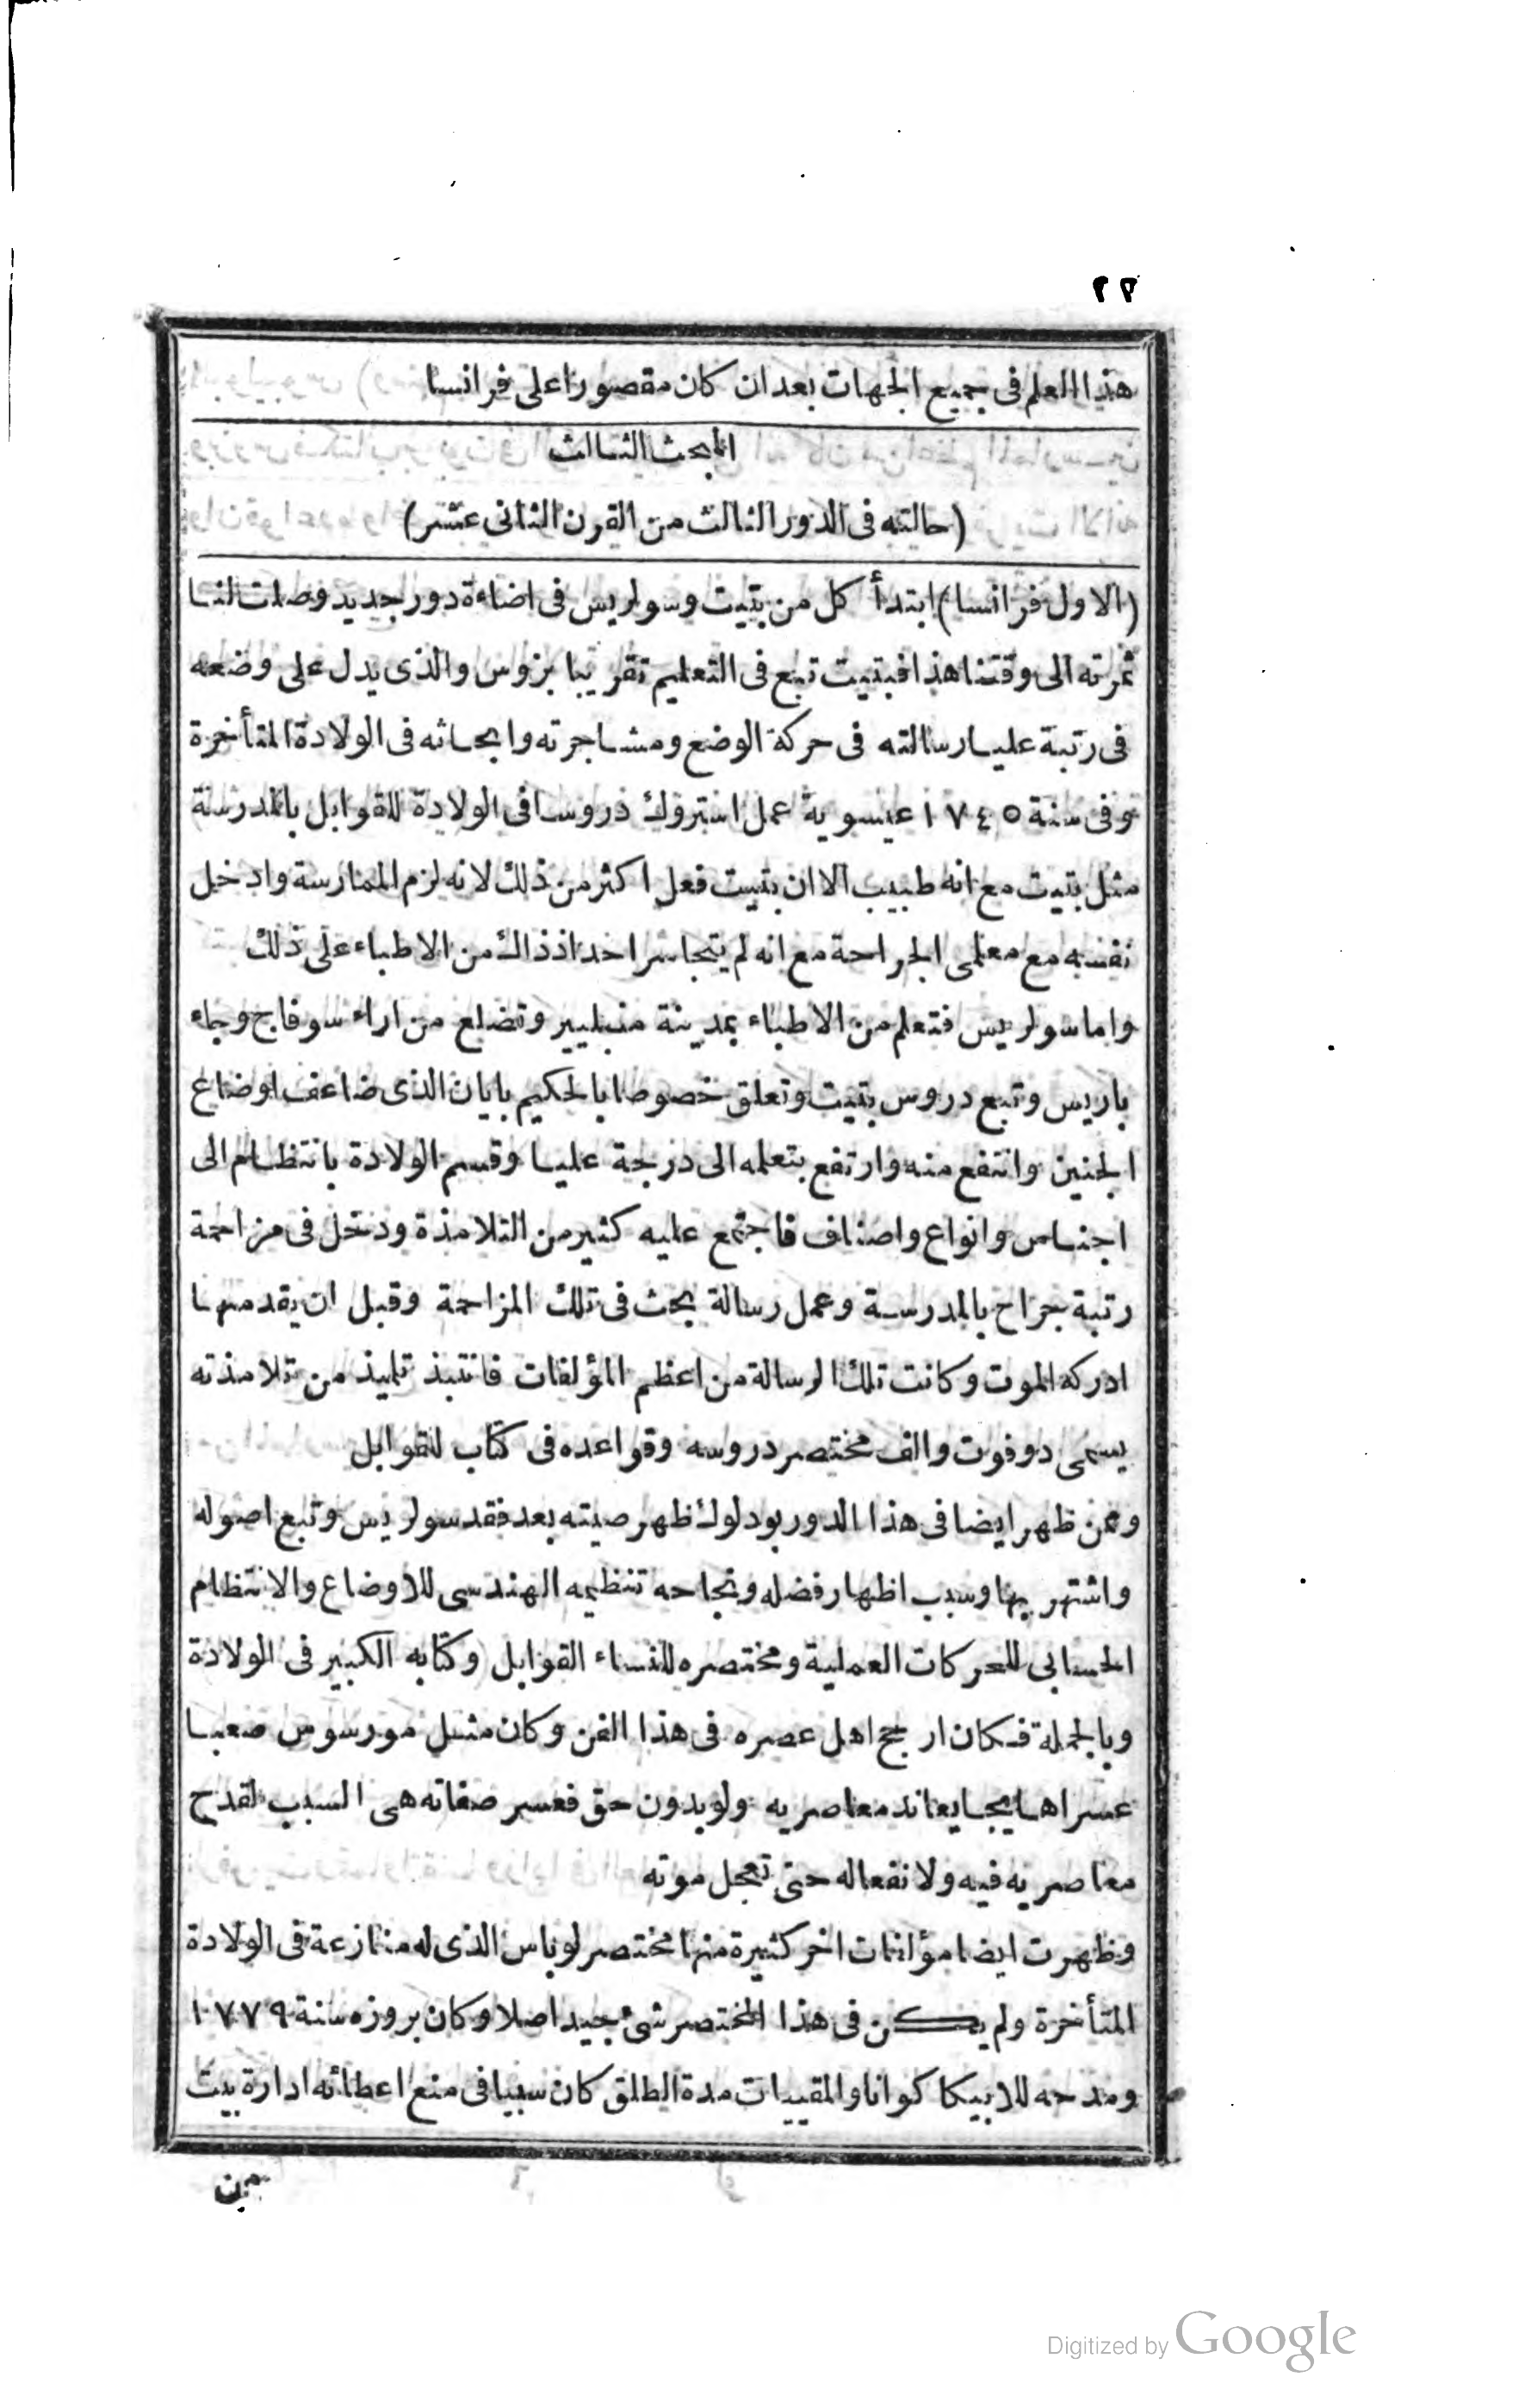 ٢٢
هذا العلم فى جميع الجهات بعد ان كان مقصورا على فرانسا
المبحث الثالث
(حالته فى الدور الثالث من القرن الثانى عشر)
(الاول فرانسا) ابتدأ كل من بتيت وسولريس فى اضاءة دور جديد وصلت لنا
ثمرته الى وقتنا هذا فبتيت تبع فى التعليم تقريبا بزوس والذى يدل على وضعه
فى رتبة عليا رسالته فى حركة الوضع ومشاجرته وابحاثه فى الولادة المتأخرة
وفى سنة ١٧٤٥ عيسوية عمل استروك دروسا فى الولادة للقوابل بالمدرسة
مثل بتيت مع انه طبيب الا ان بتيت فعل اكثر من ذلك لانه لزم الممارسة وادخل
نفسه مع معلمى الجراحة مع انه لم يتجاسر احد اذ ذاك من الاطباء على ذلك
واما سولريس فتعلم من الاطباء بمدينة منبليير وتضلع من اراء سوفاج وجاء
باريس وتبع دروس بتيت وتعلق خصوصا بالحكيم بايان الذى ضاعف اوضاع
الجنين وانتفع منه وارتفع بتعلمه الى درجة عليا وقسم الولادة بانتظام الى
اجناس وانواع واصناف فاجتمع عليه كثير من التلامذة ودخل فى مزاحمة
رتبة جراح بالمدرسة وعمل رسالة بحث فى تلك المزاحمة وقبل ان يقدمها
ادركه الموت وكانت تلك الرسالة من اعظم المؤلفات فانتبذ تلميذ من تلامذته
يسمى دوفوت والف مختصر دروسه وقواعده فى كتاب للقوابل
وممن ظهر ايضا فى هذا الدور بودلوك ظهر صيته بعد فقد سولريس وتبع اصوله
واشتهر بها وسبب اظهار فضله ونجاحه تنظيمه الهندسى للاوضاع والانتظام
الحسابى للحركات العملية ومختصره للنساء القوابل وكتابه الكبير فى الولادة
وبالجملة فكان ارجح اهل عصره فى هذا الفن وكان مثل مورسوس صعبا
عسرا هايجا يعاند معاصريه ولو بدون حق فعسر صفاته هى السبب لقدح
معاصريه فيه ولانفعاله حتى تعجل موته
وظهرت ايضا مؤلفات اخر كثيرة منها مختصر لوباس الذى له منازعة فى الولادة
المتأخرة ولم يكن فى هذا المختصر شئ جيد اصلا وكان بروزه سنة ١٧٧٩
ومدحه للابيكا كوانا والمقيبات مدة الطلق كان سببا فى منع اعطائه ادارة بيت
من
Digitized by Google